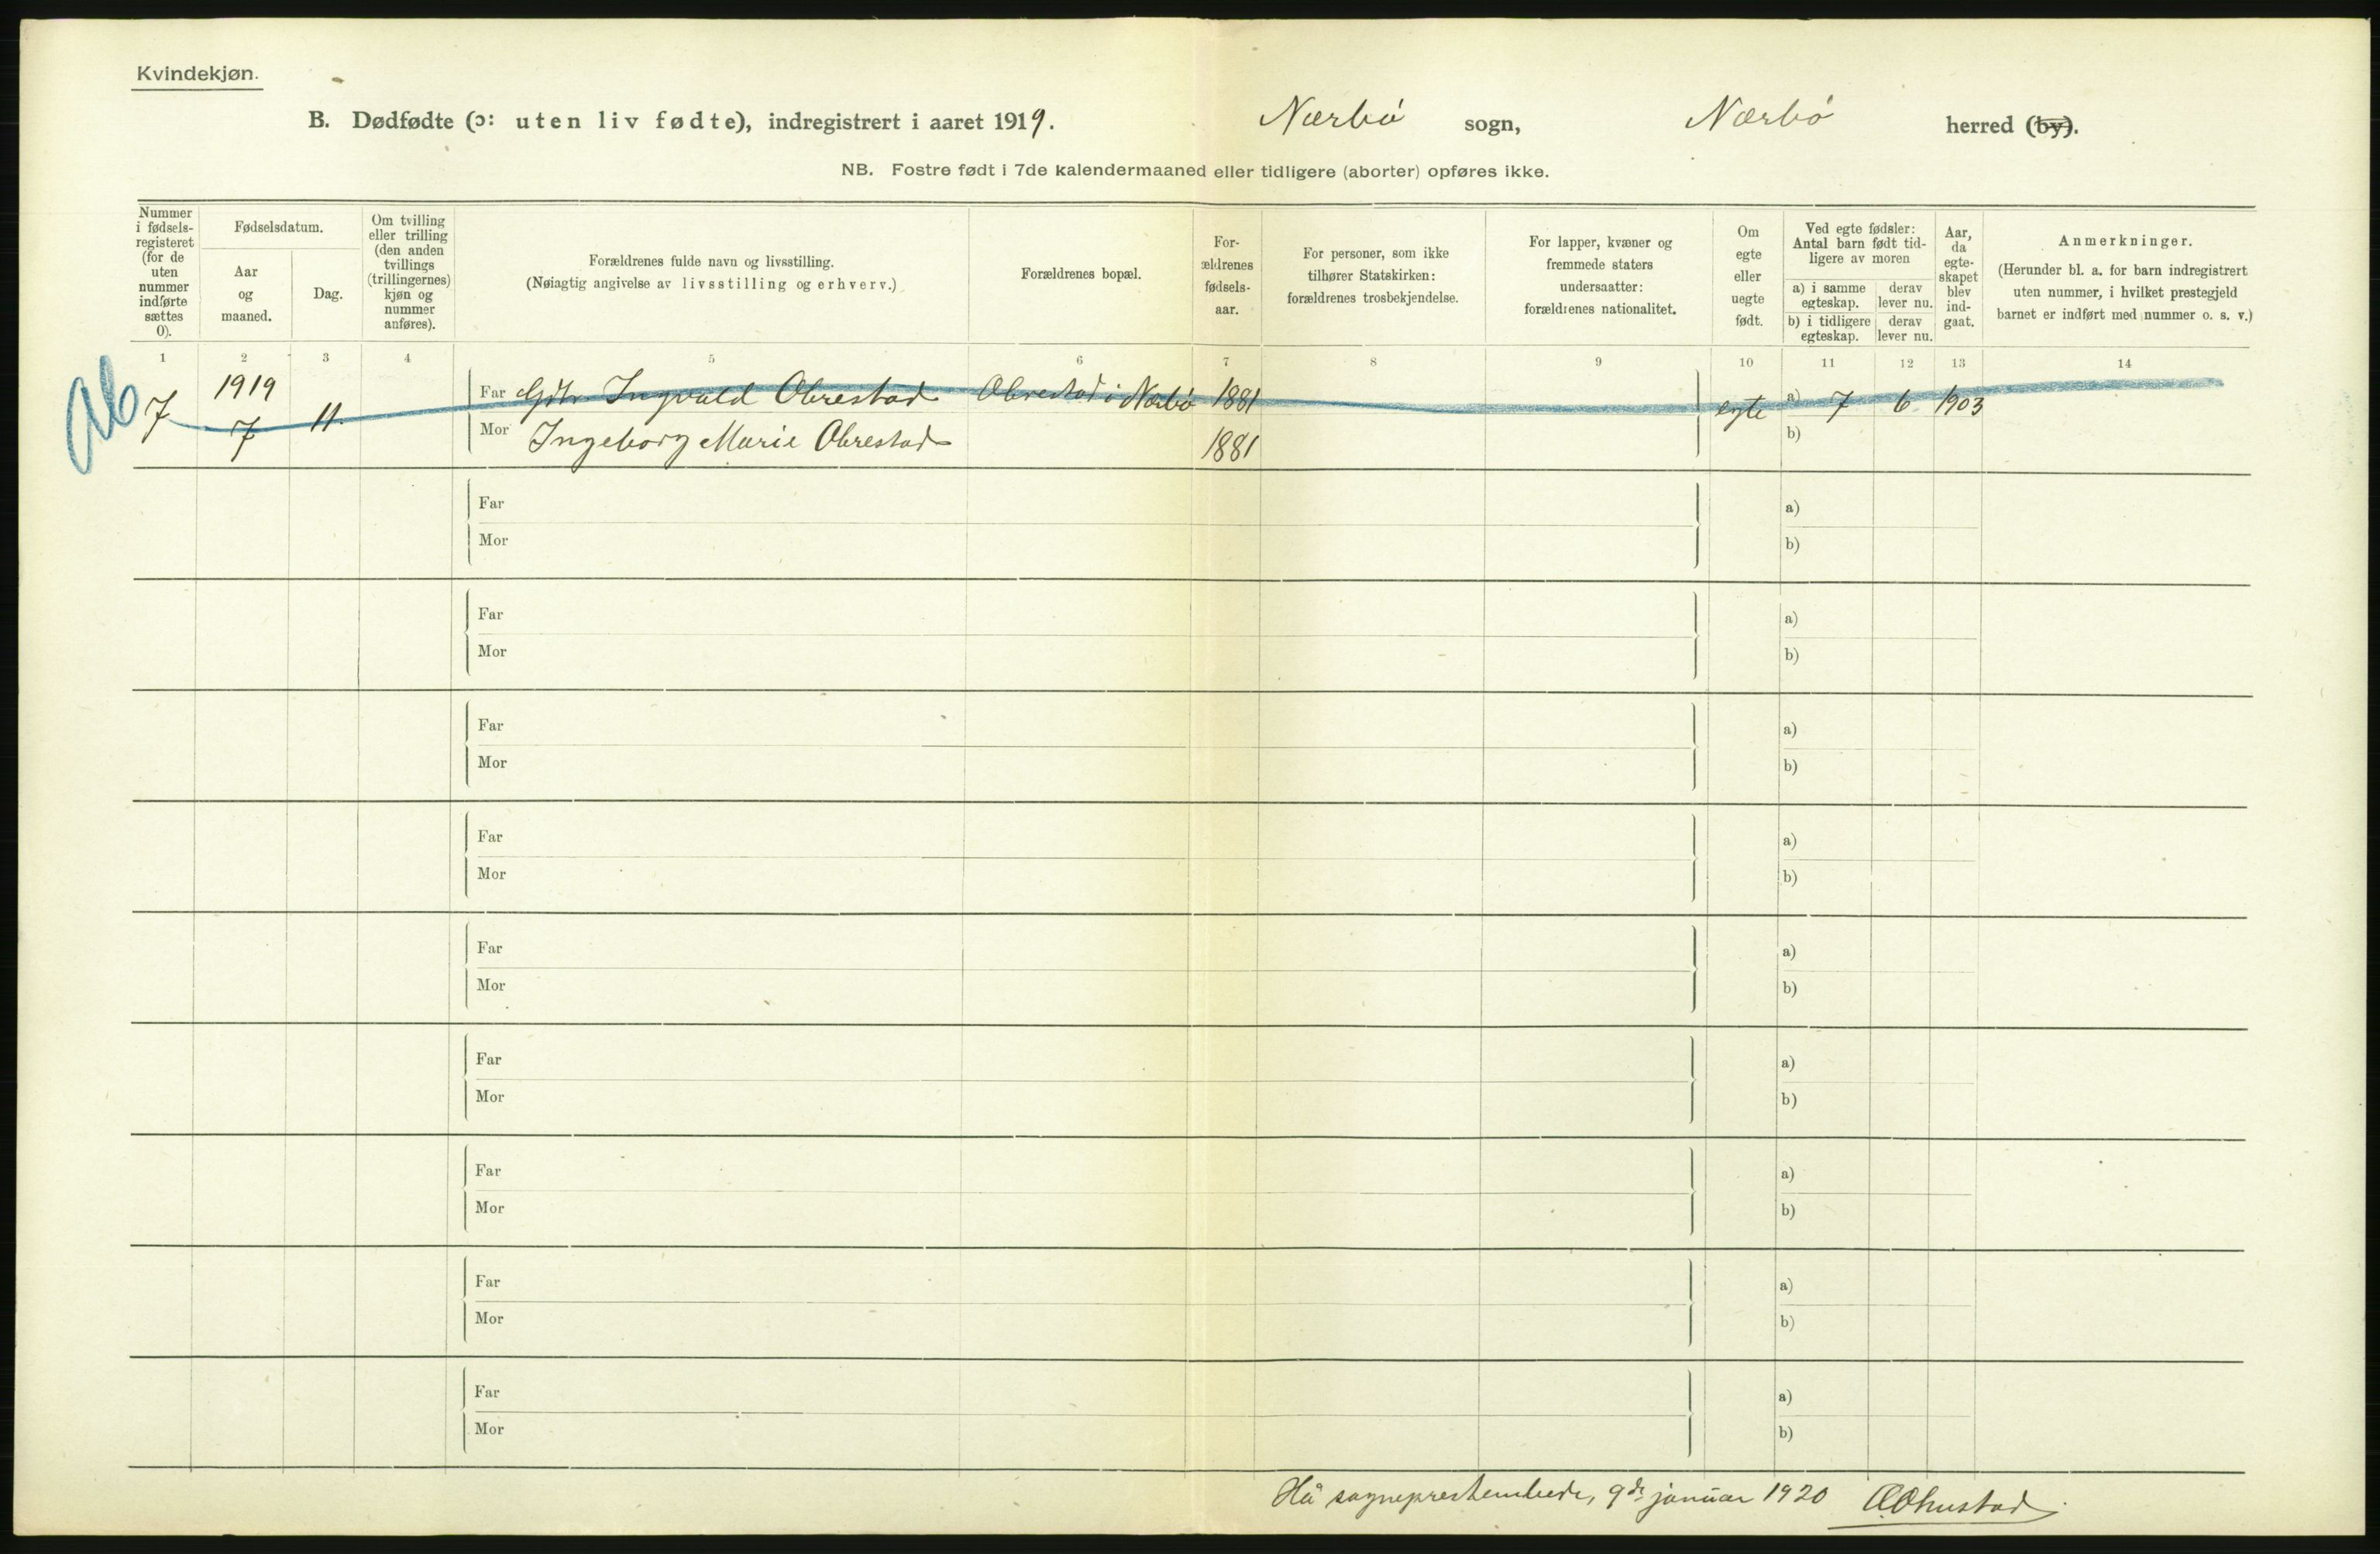 Kvindekjøn.
B. Dødfødte (ɔ: uten liv fødte), indregistrert i aaret 1919. Nærbø sogn, Nærbø herred (by).
NB. Fostre født i 7de kalendermaaned eller tidligere (aborter) opføres ikke.
Nummer i fødsels-registeret (for de uten nummer indførte sættes 0).
Fødselsdatum.
Aar og maaned.
Dag.
Om tvilling eller trilling (den anden tvillings (trillingernes) kjøn og nummer anføres).
Forældrenes fulde navn og livsstilling.
(Nøiagtig angivelse av livsstilling og erhverv.)
Forældrenes bopæl.
For-ældrenes fødsels-aar.
For personer, som ikke tilhører Statskirken: forældrenes trosbekjendelse.
For lapper, kvæner og fremmede staters undersaatter: forældrenes nationalitet.
Om egte eller uegte født.
Ved egte fødsler: Antal barn født tid-ligere av moren
a) i samme egteskap. derav lever nu.
b) i tidligere egteskap. derav lever nu.
Aar, da egte-skapet blev ind-gaat.
Anmerkninger.
(Herunder bl. a. for barn indregistrert uten nummer, i hvilket prestegjeld barnet er indført med nummer o. s. v.)
1 2 3 4 5 6 7 8 9 10 11 12 13 14
Ab
7 1919 7 11. Far Gdbr. Ingvald Obrestad Obrestad i Nærbø 1881 egte a) 7 6 1903
Mor Ingeborg Marie Obrestad 1881 b)
Far a)
Mor b)
Far a)
Mor b)
Far a)
Mor b)
Far a)
Mor b)
Far a)
Mor b)
Far a)
Mor b)
Far a)
Mor b)
Far a)
Mor b)
Far a)
Mor b)
Hå sogneprestembede, 9de januar 1920